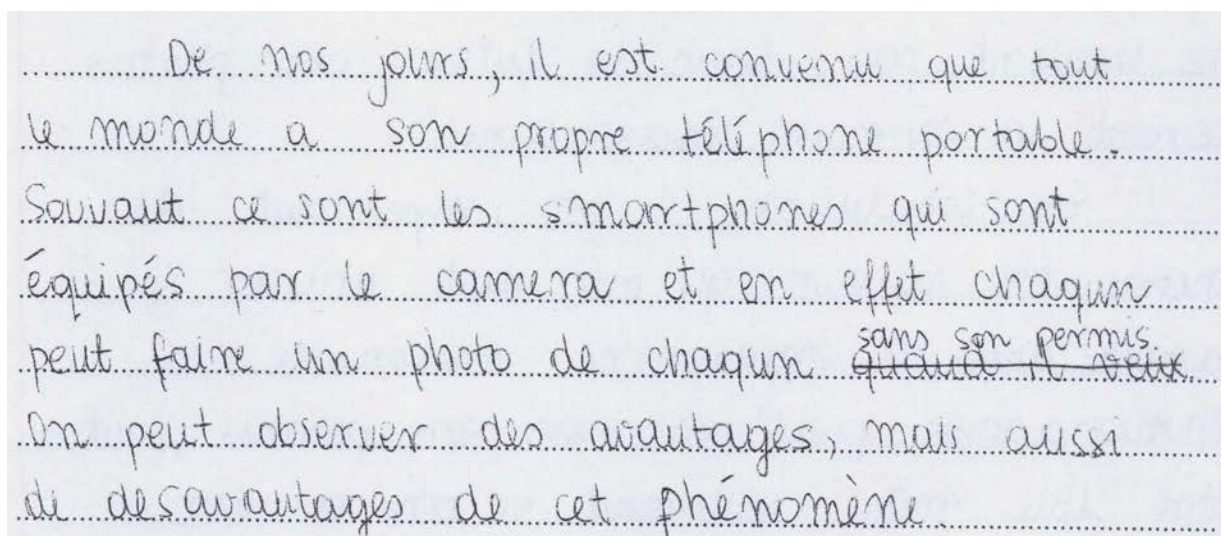 De nos jours, il est convenu que tout
le monde a son propre téléphone portable.
Souvaut ce sont les smartphones qui sont
équipés par le camera et en effet chaqun
peut faire un photo de chaqun sans son permis.
On peut observer des avautages, mais aussi
de desavautages de cet phénomène.